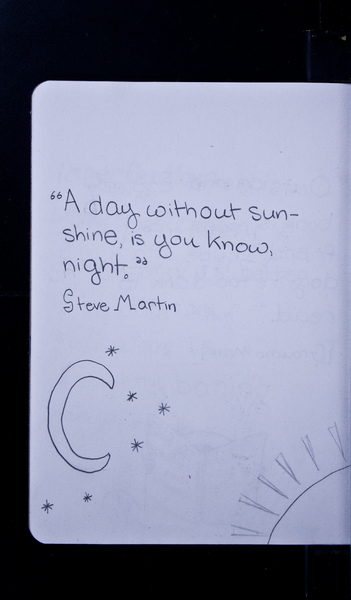 “A day without sun-
shine, is you know,
night.”
Steve Martin